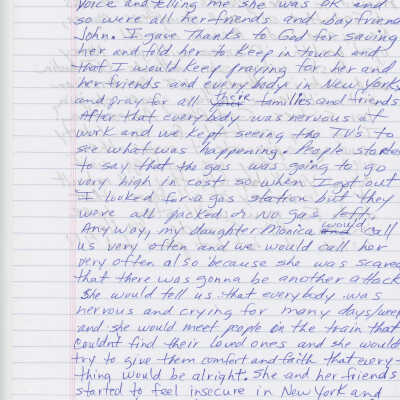 voice and telling me she was OK and
so were all her friends and boyfriend
John. I gave Thanks to God for saving
her and told her to keep in touch and
that I would keep praying for her and
her friends and everybody in New York,
and pray for all their families and friends
After that everybody was nervous at
work and we kept seeing the TV's to
see what was happening. People started
to say that the gas was going to go
very high in cost so when I got out
I looked for a gas station but they
were all packed or no gas left.
Anyway, my daughter Monica would call
us very often and we would call her
very often also because she was scared
that there was gonna be another attack
She would tell us that everybody was
nervous and crying for many days/weeks
and she would meet people on the train that
couldnt find their loved ones and she would
try to give them comfort and faith that every-
thing would be alright. She and her friends
started to feel insecure in New York and